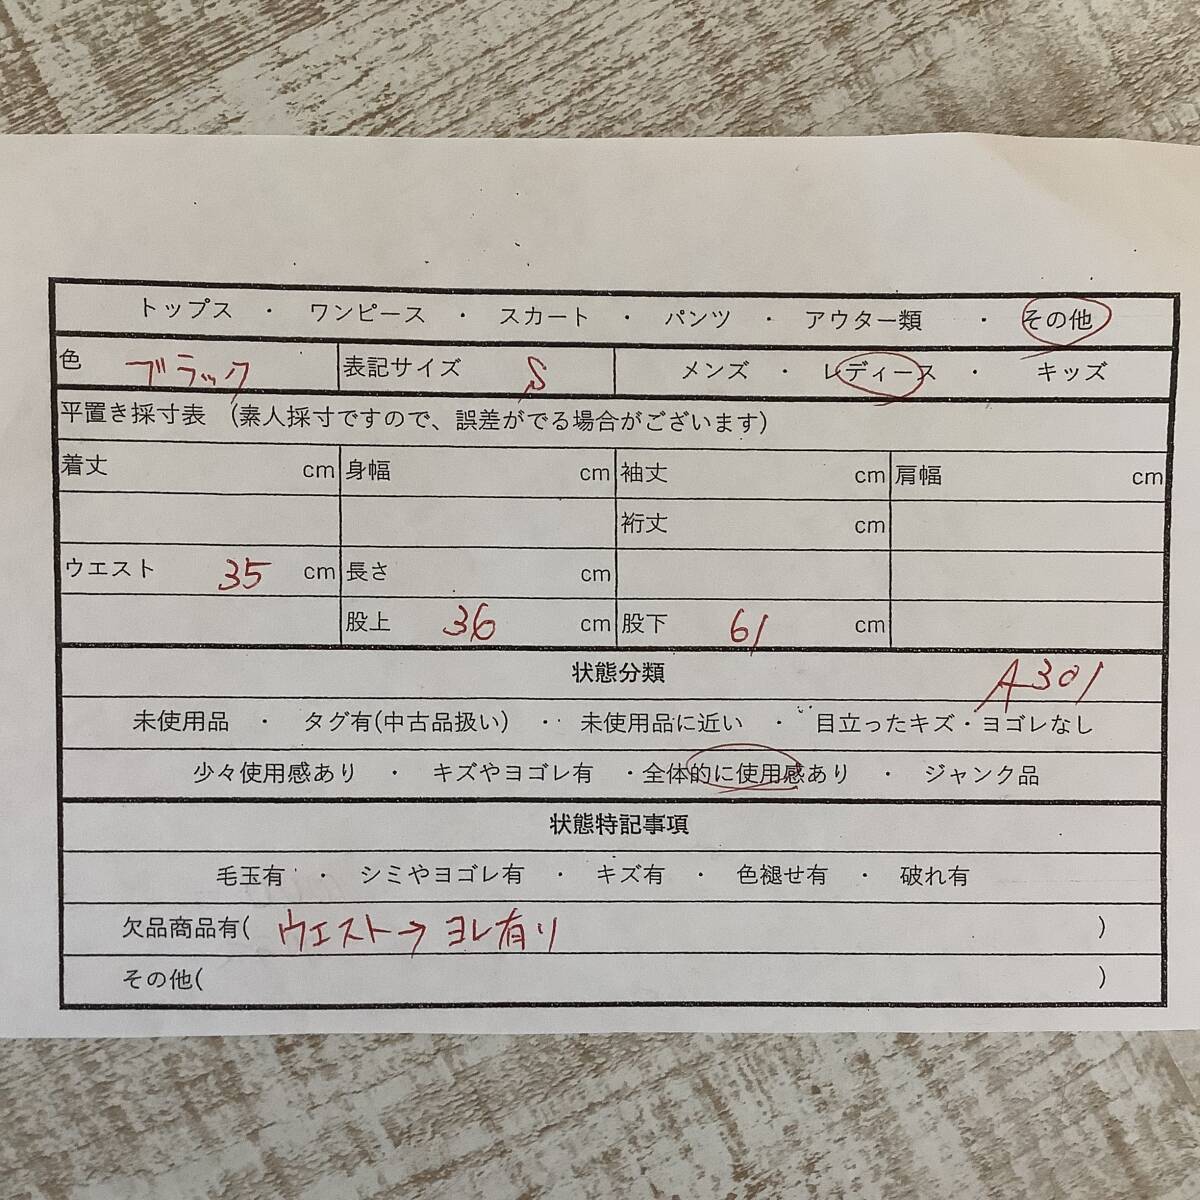 トップス ・ ワンピース ・ スカート ・ パンツ ・ アウター類 ・ その他
色 ブラック 表記サイズ S メンズ ・ レディース ・ キッズ
平置き採寸表 (素人採寸ですので、誤差がでる場合がございます)
着丈 cm 身幅 cm 袖丈 cm 肩幅 cm
裄丈 cm
ウエスト 35 cm 長さ cm
股上 36 cm 股下 61 cm
状態分類 A301
未使用品 ・ タグ有(中古品扱い) ・ 未使用品に近い ・ 目立ったキズ・ヨゴレなし
少々使用感あり ・ キズやヨゴレ有 ・全体的に使用感あり ・ ジャンク品
状態特記事項
毛玉有 ・ シミやヨゴレ有 ・ キズ有 ・ 色褪せ有 ・ 破れ有
欠品商品有( ウエスト→ヨレ有り )
その他( )